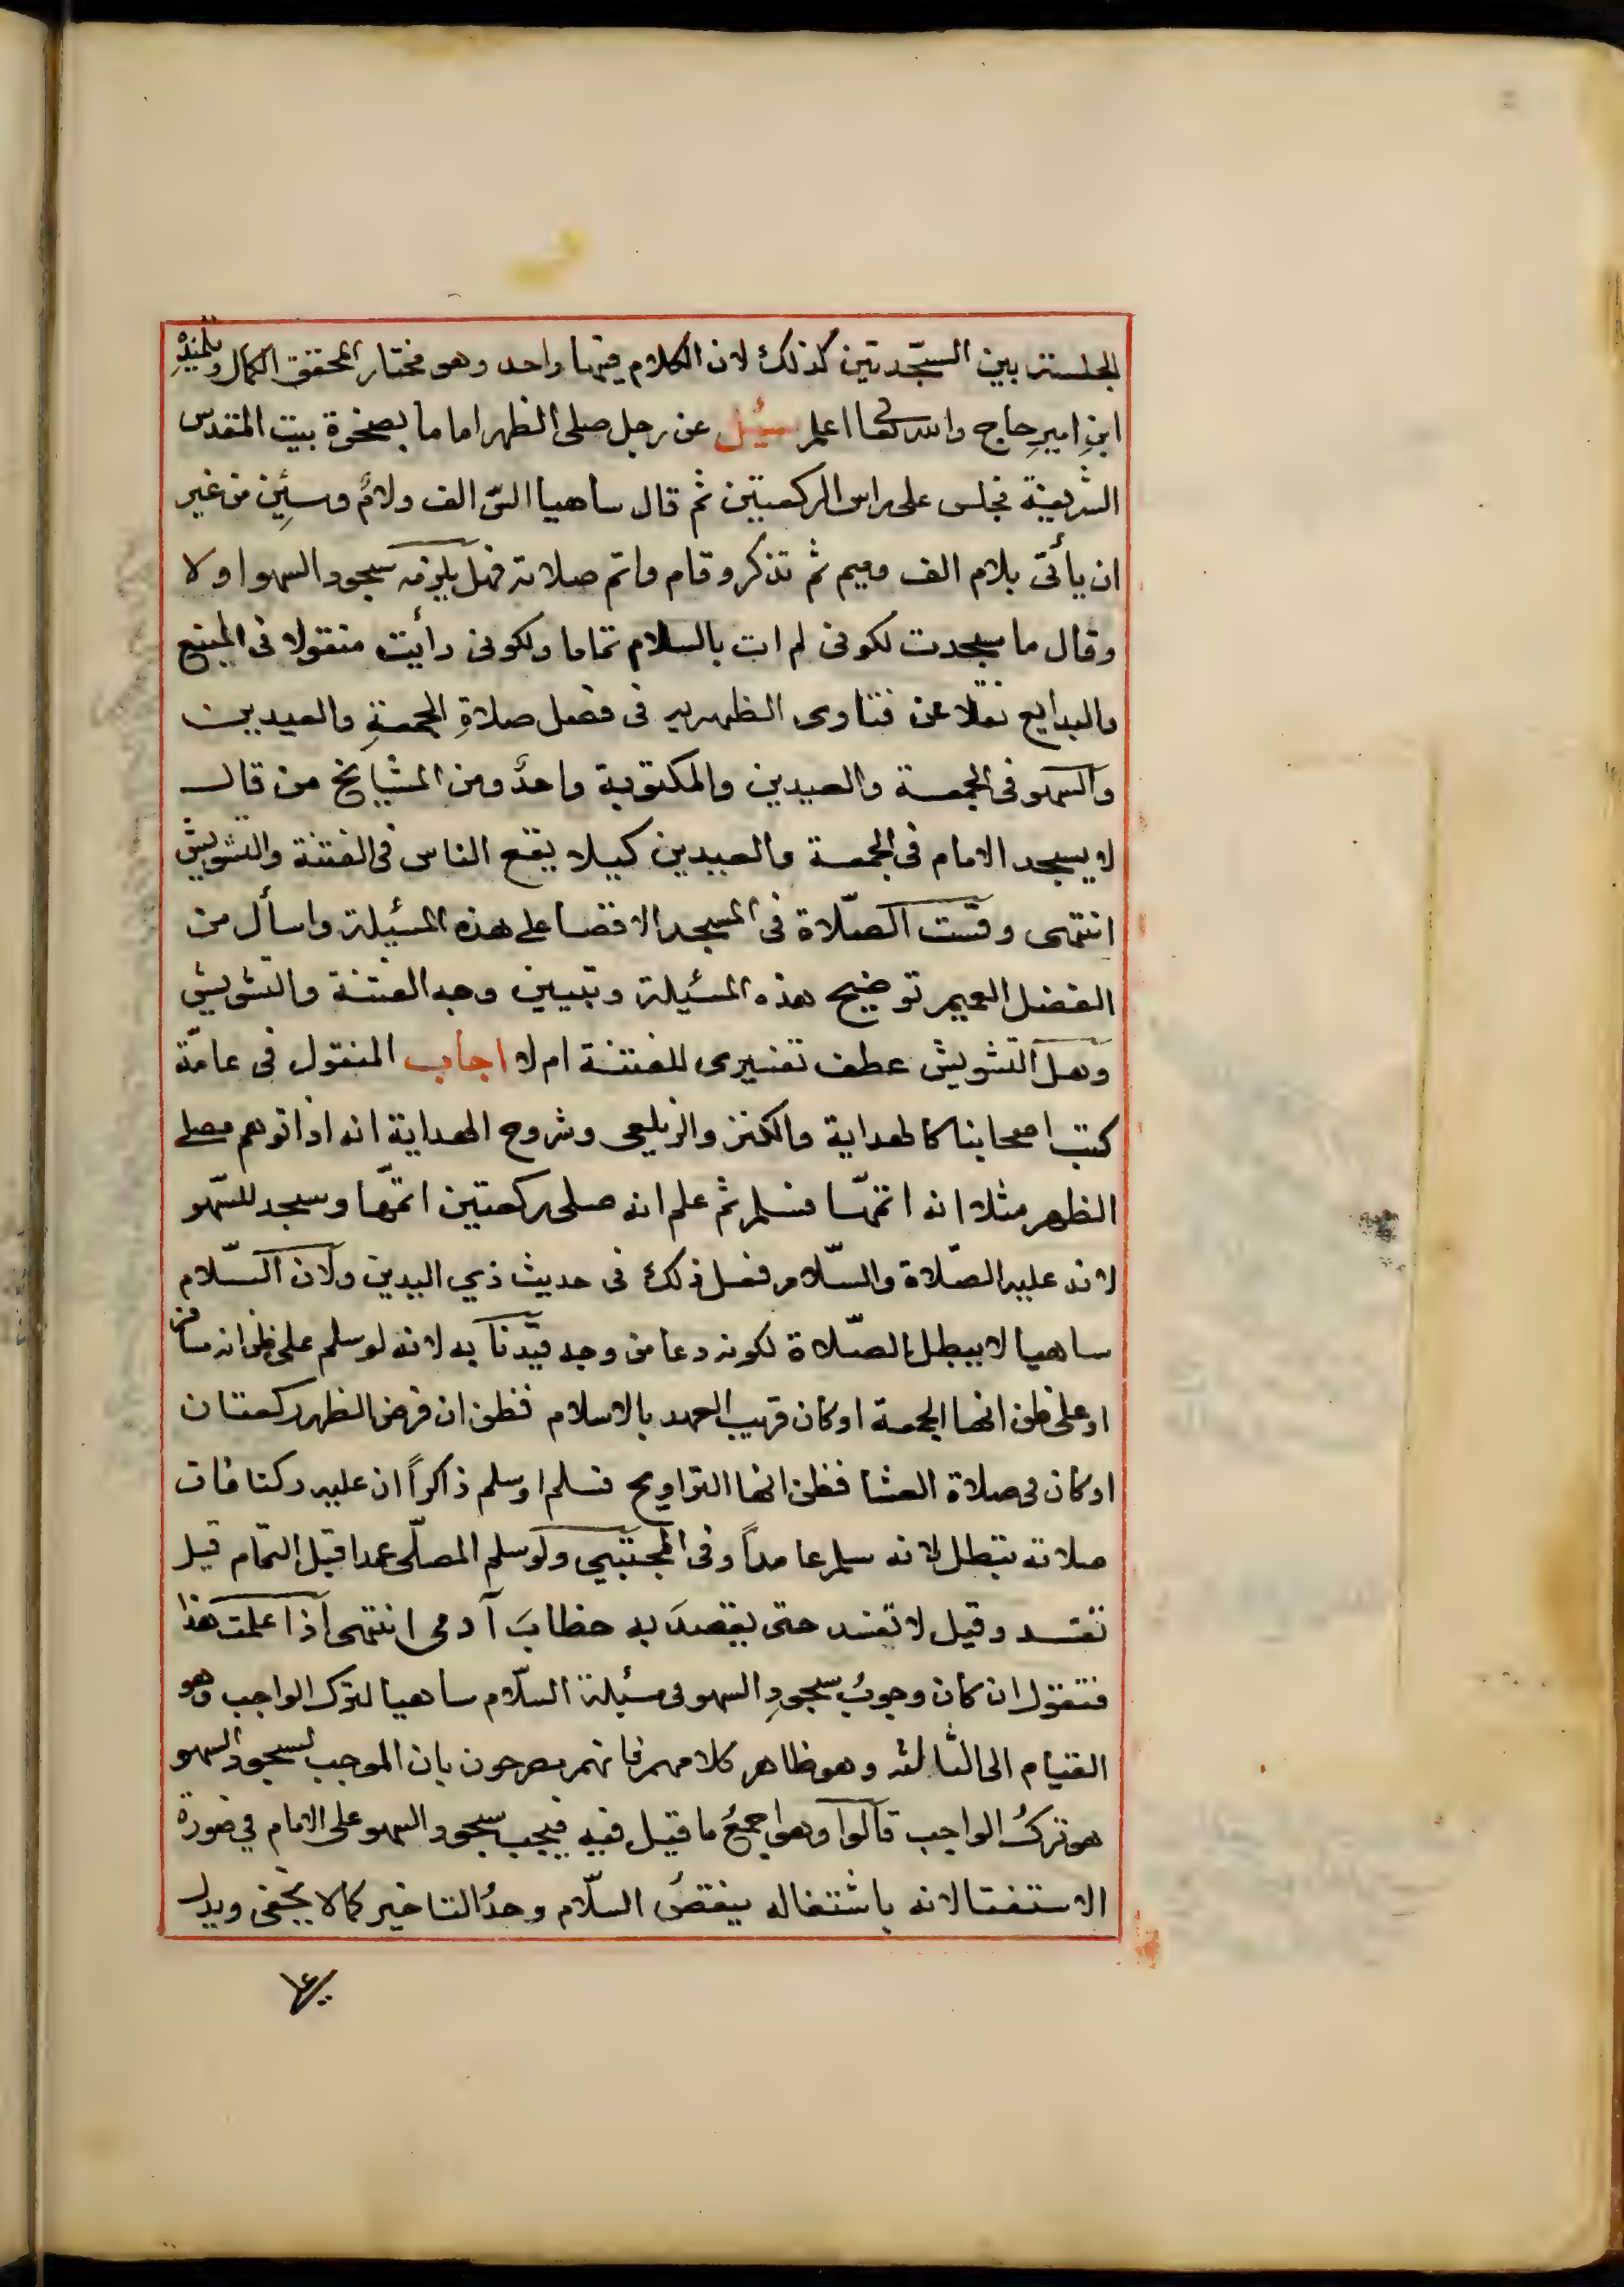 الجلسة بين السجّدتين كذلك لان الكلام فيهما واحد وهو مختار المحقق الكمال وتلميذه
ابنِ اميرِ حاج والله تعالى اعلم سُئِل عن رجل صلى الظهر اماما بصخرة بيت المقدس
الشريفة فجلس على راس الركعتين ثم قال ساهيا السّ الف ولامٌ وسِين من غير
ان يأتى بلام الف وميم ثم تذكر وقام واتم صلاته فهل يلزمه سجود السهو اولا
وقال ما سجدت لكونى لم ات بالسلام تماما ولكونى رأيت منقولا فى المنبع
والبدايع نقلا عن فتاوى الظهريه فى فضل صلاةِ الجمعةِ والعيدين
والسهو فى الجمعة والعيدين والمكتوبة واحدٌ ومن المشايخ من قال
لا يسجد الامام فى الجمعة والعيدين كيلا يقع الناس فى الفتنة والتشويش
انتهى وقست الصّلاة فى المسجد الاقصا على هذه المسئيلة واسأل من
الفضل العميم توضيح هذه المسئيلة وتبيين وجه الفتنة والتشويش
وهل التشويش عطف تفسيرى للفتنة ام لا اجاب المنقول فى عامّة
كتب اصحابنا كالهداية والكنز والزيلعى وشروح الهداية انه اذا توهم مصلى
الظهر مثلا انه اتمّها فسلم ثم علم انه صلى ركعتين اتمّها وسجد للسّهو
لانه عليه الصّلاة والسّلام فعل ذلك فى حديث ذي اليدين ولان السّلام
ساهيا لا يبطل الصّلاة لكونه دعا من وجه قيّدنا به لانه لو سلم على ظن انه مسافر
او على ظن انها الجمعة او كان قريب العهد بالاسلام فظن ان فرض الظهر ركعتان
او كان فى صلاة العشا فظن انها التراويح فسلم او سلم ذاكراً ان عليه ركنا فان
صلاته تبطل لانه سلم عامداً وفى المجتبى ولو سلم المصلّى عمدا قبل التمّام قيل
تفسد وقيل لا تفسد حتى يقصدَ به خطابَ آدمى انتهى اذا علمت هذا
فنقول ان كان وجوبُ سجودِ السهو فى مسئلة السّلام ساهيا لترك الواجب وهو
القيام الى الثالثه وهو ظاهر كلامهم فانهم مصرحون بان الموجب لسجود السهو
هو تركُ الواجب قالوا وهو اجمعُ ما قيل فيه فيجب سجود السهو على الامام في صورة
الاستفتا لانه باشتغاله ببعضُ السلّام وجدُ التاخير كما لا يخفى ويدل